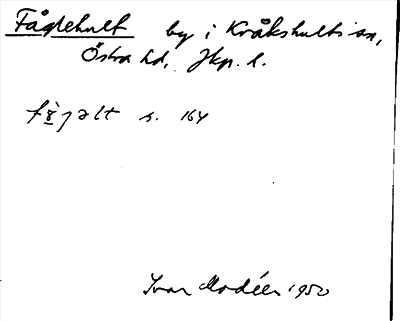 Fåglehult by i Kråkshults sn,
Östra hd, Jkp. l.
s. 164
Ivar Modéer 1950